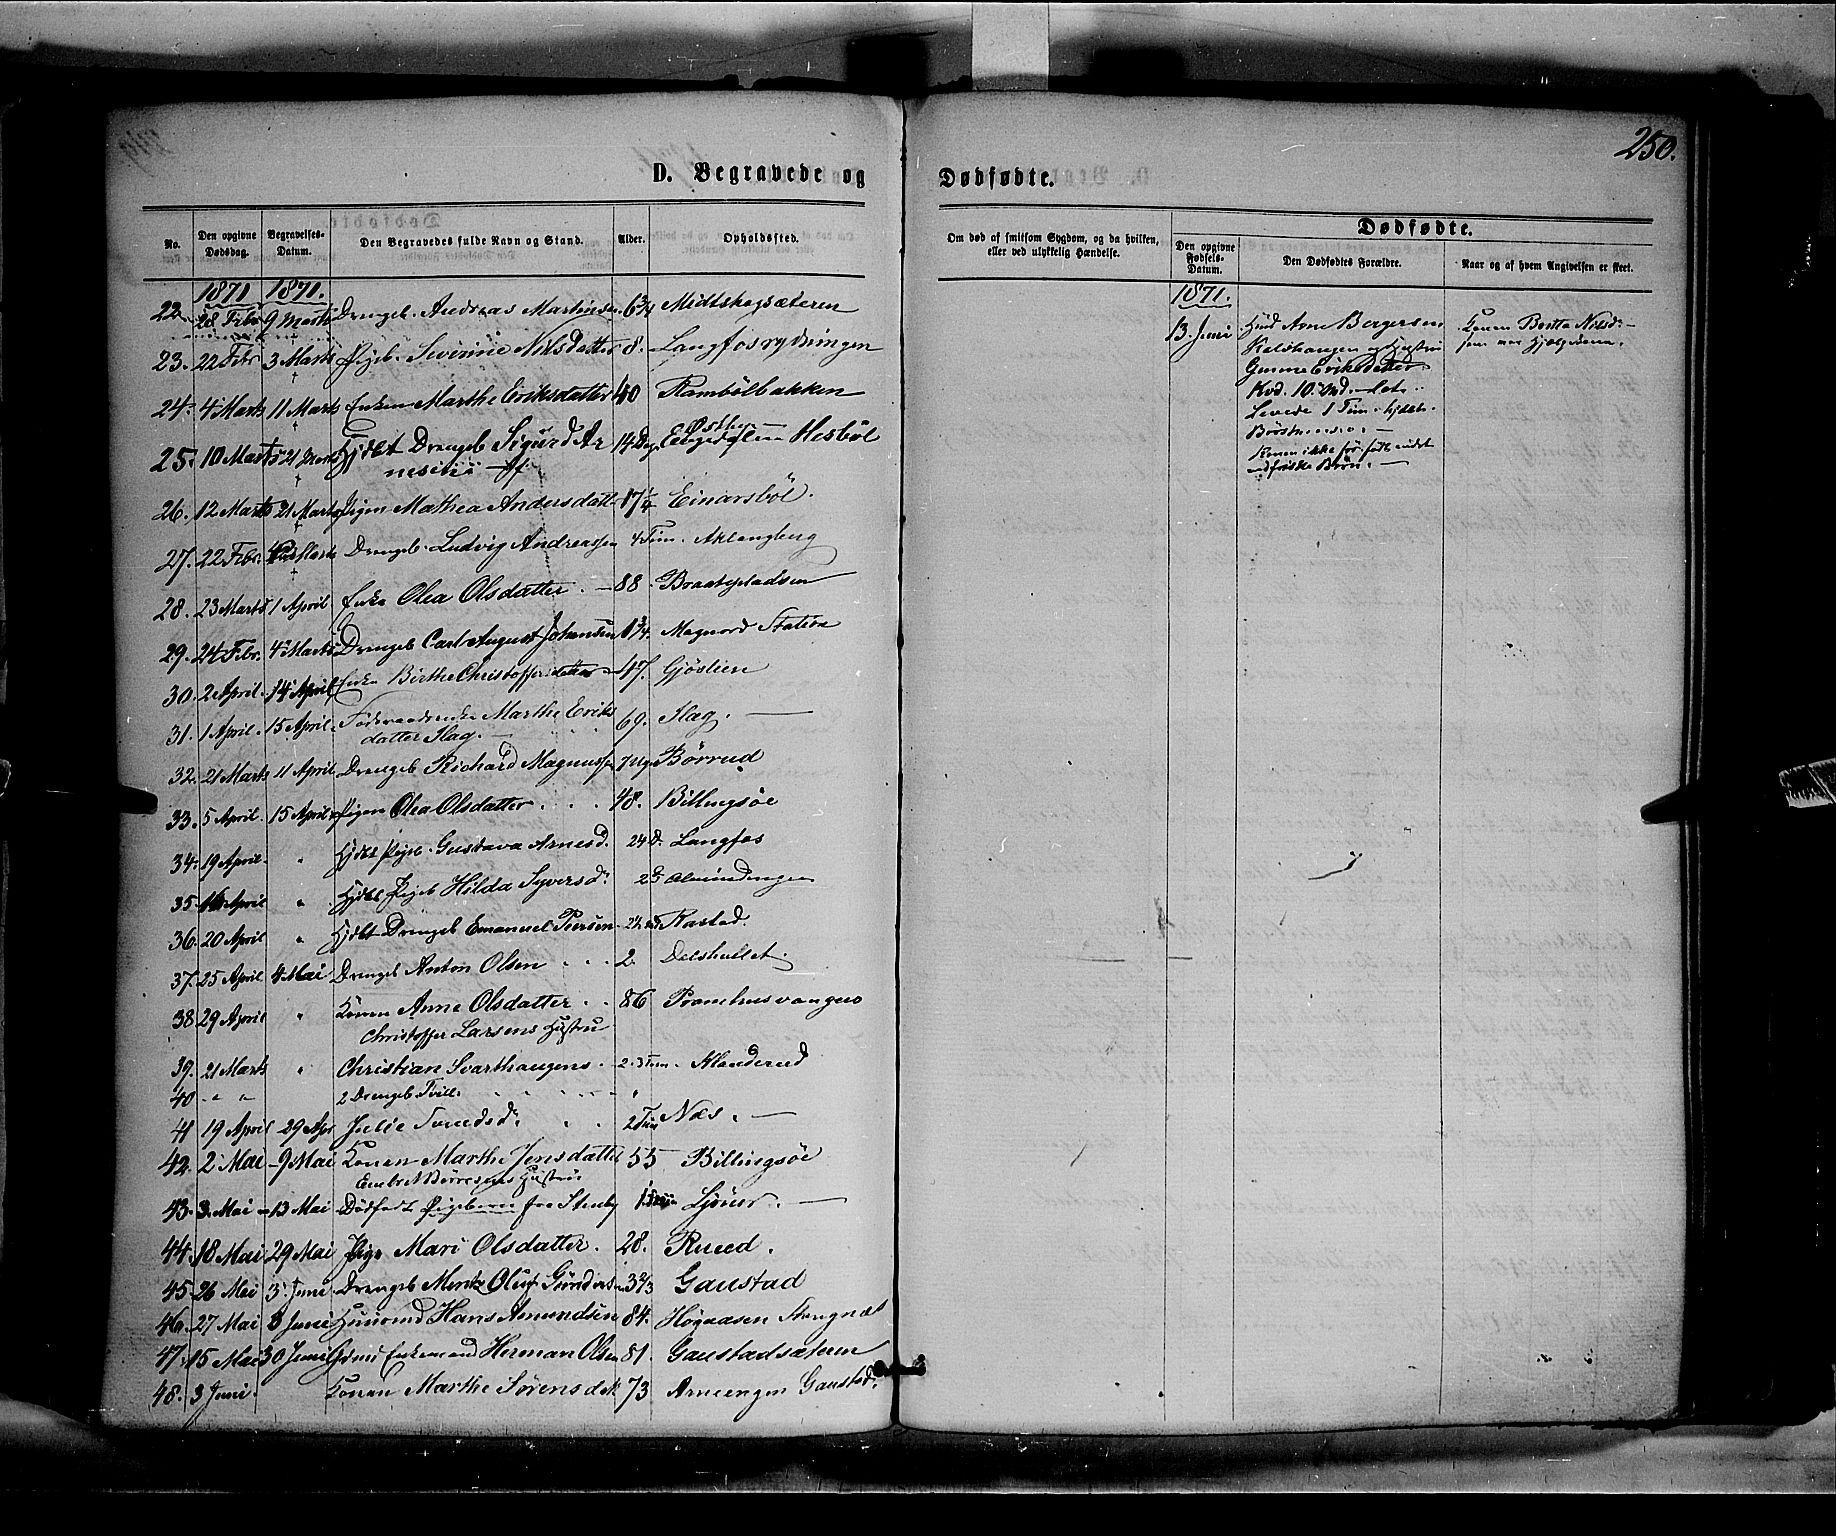 250.
D. Begravede og Dødfødte.
No. Den opgivne Dødsdag. Begravelses-Datum. Den Begravedes fulde Navn og Stand. Alder. Opholdssted.
Om død af smitsom Sygdom, og da hvilken, eller ved ulykkelig Hændelse.
Dødfødte.
Den opgivne Fødsels-Datum. Den Dødfødtes Forældre. Naar og af hvem Angivelsen er skeet.
1871 1871.
22. 28 Febr 9 Marts Drengeb. Andreas Martinsen 6 3/4 Midtskogsæteren
23. 22 Febr 3 Marts Pigeb. Severine Nilsdatter 8. Langfosrydningen
24. 4 Marts 11 Marts Enken Marthe Eriksdatter 40 Rambölbakken
25. 10 Marts 21 Marts Hjdbt Drengeb Sigurd Ar 14 Dg. Østby Engedalen Hesböl
26. 12 Marts 21 Marts Pigen Mathea Andersdatt 17 1/4 Einarsböl.
27. 22 Febr. Marts Drengeb. Ludvig Andreassen 4 Tim. Aklangberg
28. 23 Marts 1 April Enke Olea Olsdatter. 88. Braatepladsen
29. 24 Febr. 4 Marts Drengeb Carl August Johansen 1 3/4. Magnord Station
30. 2 April. 14 April Enke Birthe Christoffersdatter 47. Gjöslien
31. 1 April. 15 April. Föderaadsenke Marthe Eriks 69. Slag.
datter Slag.
32. 21 Marts 11 April Drengeb Richard Magnuss 7 Ug. Börrud
33. 5 April. 15 April Pigen Olea Olsdatter 48. Billingsöe
34. 19 April. " Hjdbt Pigeb. Gustava Arnesd. 24 D. Langfos
35. April " Hjdbt Pigeb Hilda Syversd: Almindingen
36. 20 April " Hjdbt Drengeb Emanuel Persen Rastad.
37. 25 April 4 Mai Drengeb Anton Olsen 2. Delshullet.
38 29 April " Konen Anne Olsdatter 86 Pramhusvangen
Christoffer Larsens Hustru
39. 21 Marts " Christian Svarthaugens 2. 3 Tim. Klanderud
40 " " 2 Drengeb Tvill.
41 19 April 29 Apr Julie Tvendsd: 2 Tim Næs.
42. 2 Mai 9 Mai Konen Marthe Jensdatter 55 Billingsöe
Embret Börresens Hustru
43. 3 Mai 13 Mai Dödfödt Pigebarn fra Stenby Ljöner.
44. 18 Mai 29 Mai Pige Mari Olsdatter. 28. Ruud.
45. 26 Mai 3 Juni Drengeb Olaf Gunders 3 2/3 Gaustad
46. 27 Mai 8 Juni Huusmd Hans Amundsen 84. Högaasen Stangnæs
47. 15 Mai 30 Juni Enkemand Herman Olsen 81. Gaustadsæteren
48. 3 Juni. Konen Marthe Sörensd 73 Arneengen Gaustad.
1871.
13. Juni Arne Bergersen
Kalshaugen og Hustru
Gunne Eriksdatter
Kvd. 10. Md.
Levede 1 Tim. hjdbt.
Konen ikke før født
Børn.
Konen Berthe Nilsd:
som var Hjælpekone.